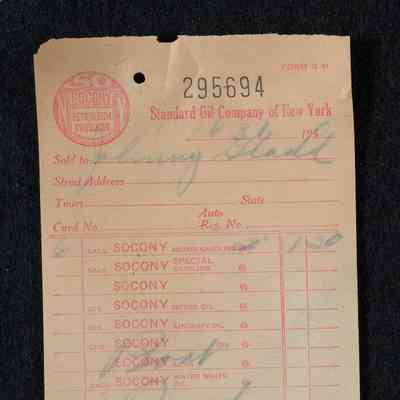 FORM S 41
SO
SOCONY
PETROLEUM
PRODUCTS
295694
Standard Oil Company of New York
192
Sold to Johnny Gladd
Street Address
Town State
Card No. Auto Reg. No.
6 GALS. SOCONY MOTOR GASOLINE @ 1 50
GALS. SOCONY SPECIAL GASOLINE @
SOCONY @
QTS. SOCONY MOTOR OIL @
QTS. SOCONY AIRCRAFT OIL @
QTS. SOCONY OIL @
GALS. SOCONY WATER WHITE OIL @